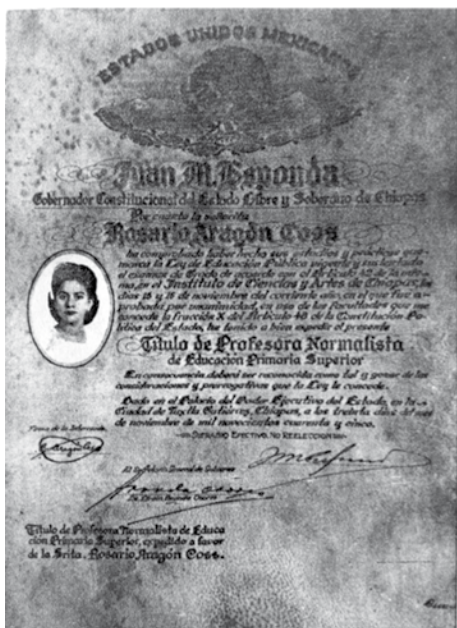 ESTADOS UNIDOS MEXICANOS
Juan M. Esponda
Gobernador Constitucional del Estado Libre y Soberano de Chiapas
Por cuanto la señorita
Rosario Aragón Coss
ha comprobado haber hecho sus estudios y prácticas que
marca la Ley de Educación Pública vigente y sustentado
el examen de Grado de acuerdo con el Artículo 42 de la misma,
en el Instituto de Ciencias y Artes de Chiapas, los
días 15 y 16 de noviembre del corriente año, en el que fue a-
probada por unanimidad, en uso de las facultades que me
concede la fracción X del Artículo 48 de la Constitución Po-
lítica del Estado, he tenido a bien expedir el presente
Título de Profesora Normalista
de Educación Primaria Superior
En consecuencia deberá ser reconocida como tal y gozar de las
consideraciones y prerrogativas que la Ley le concede.
Dado en el Palacio del Poder Ejecutivo del Estado, en la
Ciudad de Tuxtla Gutiérrez, Chiapas, a los treinta días del mes
de noviembre de mil novecientos cuarenta y cinco.
SUFRAGIO EFECTIVO. NO REELECCION
Firma de la Interesada
El Secretario General de Gobierno
Título de Profesora Normalista de Educa
ción Primaria Superior, expedido a favor
de la Srita. Rosario Aragón Coss.